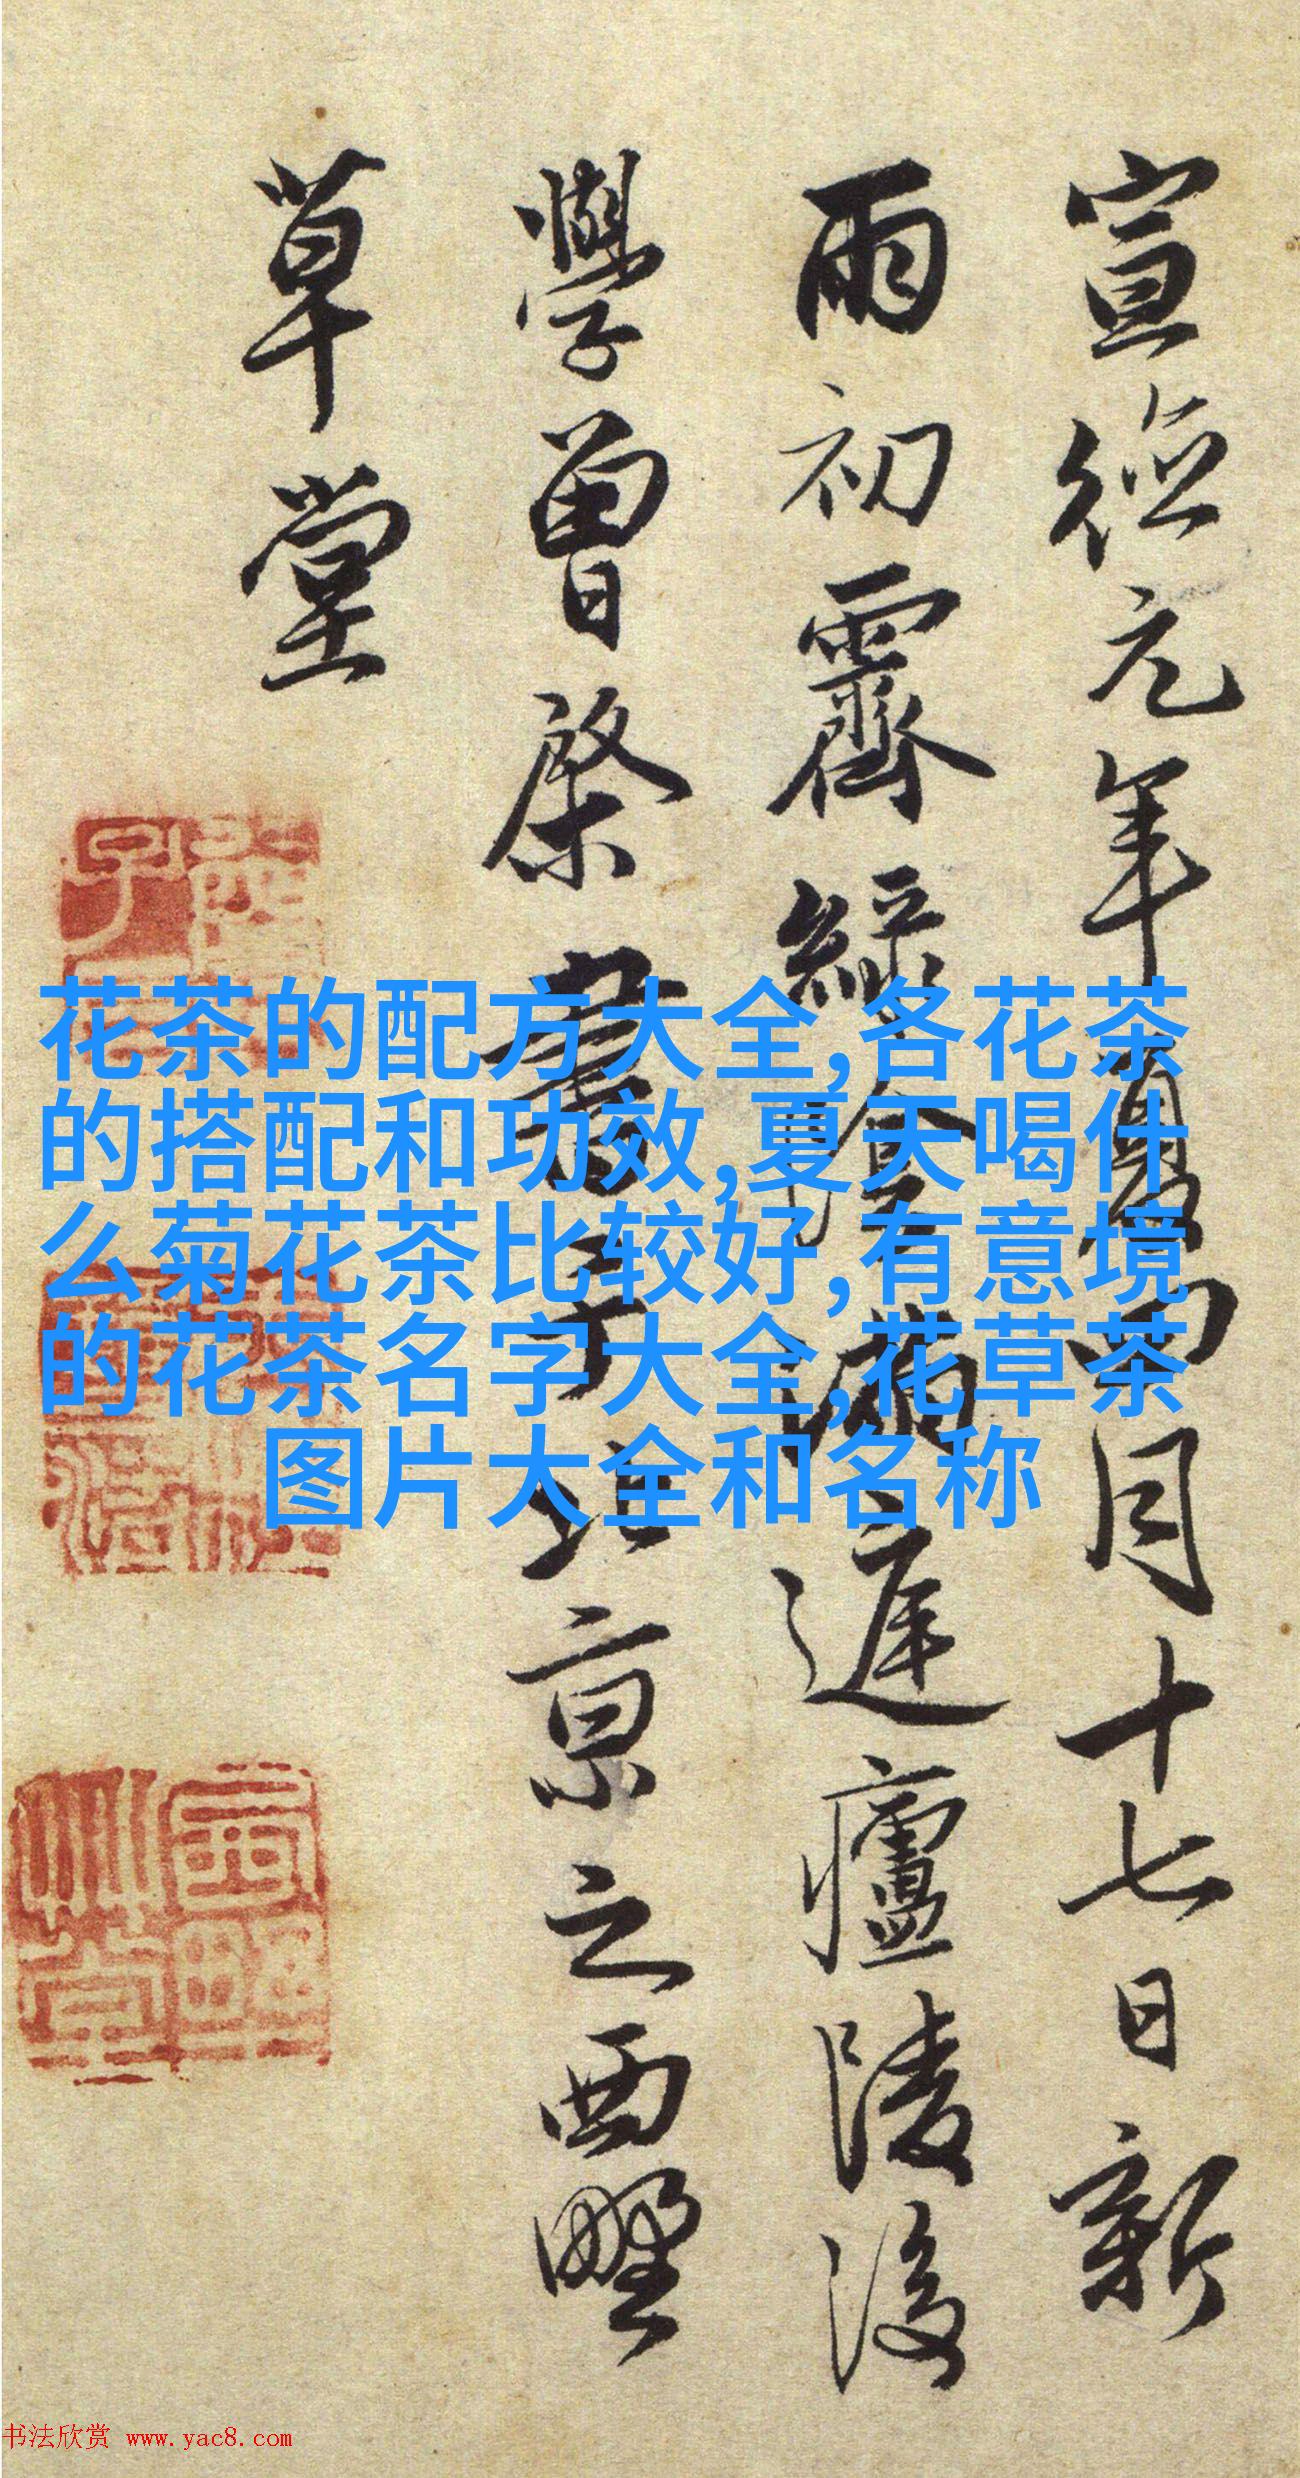 宣德元年夏四月十七日新
雨初霽綠陰滿庭廬陵後
學曾棨書于北京之西墅
草堂
花茶的配方大全,各花茶
的搭配和功效,夏天喝什
么菊花茶比较好,有意境
的花茶名字大全,花草茶
图片大全和名称
书法欣赏 www.yac8.com